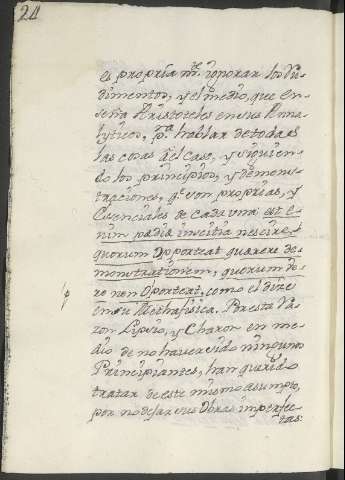 24
es propria mte. ignorar los ru-
dimentos, y el medio, que en-
seña Aristoteles en sus Ana-
lyticos, pa. hablar de todas
las cosas del caso, y siguien-
do los principios, y demons-
traciones, qe. son proprias, y
Esenciales de cada una: est e-
nim pædia inscitia nescire,
quorum Oporteat quærere de-
monstrationem, quorum ve-
ro non Oporteat, como el dize
en su Methafisica. Por esta ra-
zon Lipsio, y Charon en me-
dio de no haver sido ningunos
Principiantes, han querido
tratar de este mismo asumpto,
por no dejar sus Obras imperfec-
tas: